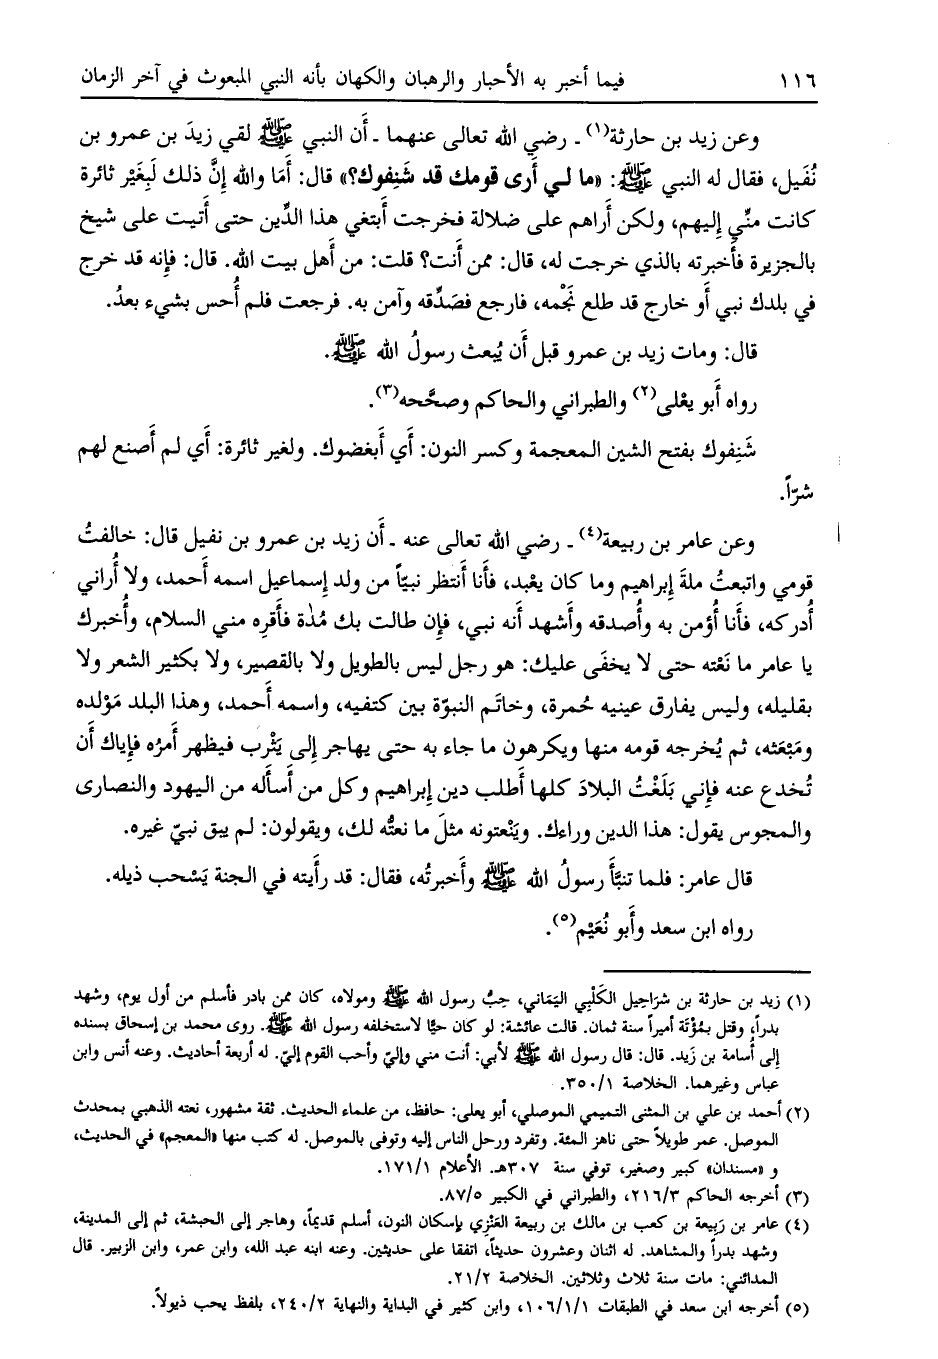 ١١٦ فيما أخبر به الأحبار والرهبان والكهان بأنه النبي المبعوث في آخر الزمان
وعن زيد بن حارثة(١) ـ رضي الله تعالى عنهما ـ أَن النبي ﷺ لقي زيدَ بن عمرو بن
نُفَيل، فقال له النبي ﷺ: «ما لي أَرى قومك قد شَنِفوك؟» قال: أَمَا والله إِنَّ ذلك لَبِغَيْر ثائرة
كانت منِّي إِليهم، ولكن أَراهم على ضلالة فخرجت أَبتغي هذا الدِّين حتى أَتيت على شيخ
بالجزيرة فأَخبرته بالذي خرجت له، قال: ممن أَنت؟ قلت: من أَهل بيت الله. قال: فإِنه قد خرج
في بلدك نبي أَو خارج قد طلع نَجْمه، فارجع فصَدِّقه وآمن به. فرجعت فلم أُحس بشيء بعدُ.
قال: ومات زيد بن عمرو قبل أَن يُبعث رسولُ الله ﷺ.
رواه أَبو يعْلى(٢) والطبراني والحاكم وصحَّحه(٣).
شَنِفوك بفتح الشين المعجمة وكسر النون: أَي أَبغضوك. ولغير ثائرة: أَي لم أَصنع لهم
شرّاً.
وعن عامر بن ربيعة(٤) ـ رضي الله تعالى عنه ـ أَن زيد بن عمرو بن نفيل قال: خالفتُ
قومي واتبعتُ ملةَ إِبراهيم وما كان يعْبد، فأَنا أَنتظر نبيّاً من ولد إِسماعيل اسمه أَحمد، ولا أُراني
أُدركه، فأَنا أُؤمن به وأُصدقه وأَشهد أَنه نبي، فإِن طالت بك مُدَّة فأَقرِه مني السلام، وأُخبرك
يا عامر ما نَعْته حتى لا يخفَى عليك: هو رجل ليس بالطويل ولا بالقصير، ولا بكثير الشعر ولا
بقليله، وليس يفارق عينيه حُمرة، وخاتَم النبوّة بين كتفيه، واسمه أَحمد، وهذا البلد مَوْلده
ومَبْعَثه، ثم يُخرجه قومه منها ويكرهون ما جاء به حتى يهاجر إِلى يَثْرِب فيظهر أَمرُه فإِياك أَن
تُخدع عنه فإِني بَلَغْتُ البلادَ كلها أَطلب دين إِبراهيم وكل من أَسأَله من اليهود والنصارى
والمجوس يقول: هذا الدين وراءك. ويَنْعتونه مثلَ ما نعتُّه لك، ويقولون: لم يبق نبيّ غيره.
قال عامر: فلما تنبَّأَ رسولُ الله ﷺ وأَخبرتُه، فقال: قد رأَيته في الجنة يَسْحب ذيله.
رواه ابن سعد وأَبو نُعَيْم(٥).
(١) زيد بن حارثة بن شرَاحيل الكَلْبي اليَمَاني، حِبُّ رسول الله ﷺ ومولاه، كان ممن بادر فأسلم من أول يوم، وشهد
بدراً، وقتل بمُؤْتَة أميراً سنة ثمان. قالت عائشة: لو كان حيًّا لاستخلفه رسول الله ﷺ. روى محمد بن إسحاق بسنده
إلى أسامة بن زَيد. قال: قال رسول الله ﷺ لأبي: أنت مني وإليّ وأحب القوم إليّ. له أربعة أحاديث. وعنه أنس وابن
عباس وغيرهما. الخلاصة ٣٥٠/١.
(٢) أحمد بن علي بن المثنى التميمي الموصلي، أبو يعلى: حافظ، من علماء الحديث. ثقة مشهور، نعته الذهبي بمحدث
الموصل. عمر طويلاً حتى ناهز المئة. وتفرد ورحل الناس إليه وتوفى بالموصل. له كتب منها «المعجم» في الحديث،
و «مسندان» كبير وصغير، توفي سنة ٣٠٧هـ. الأعلام ١٧١/١.
(٣) أخرجه الحاكم ٢١٦/٣، والطبراني في الكبير ٨٧/٥.
(٤) عامر بن رَبِيعة بن كعب بن مالك بن ربيعة العَنْزِي بإسكان النون، أسلم قديماً، وهاجر إلى الحبشة، ثم إلى المدينة،
وشهد بدراً والمشاهد. له اثنان وعشرون حديثاً، اتفقا على حديثين. وعنه ابنه عبد الله، وابن عمر، وابن الزبير. قال
المدائني: مات سنة ثلاث وثلاثين. الخلاصة ٢١/٢.
(٥) أخرجه ابن سعد في الطبقات ١٠٦/١/١، وابن كثير في البداية والنهاية ٢٤٠/٢، بلفظ يحب ذيولاً.